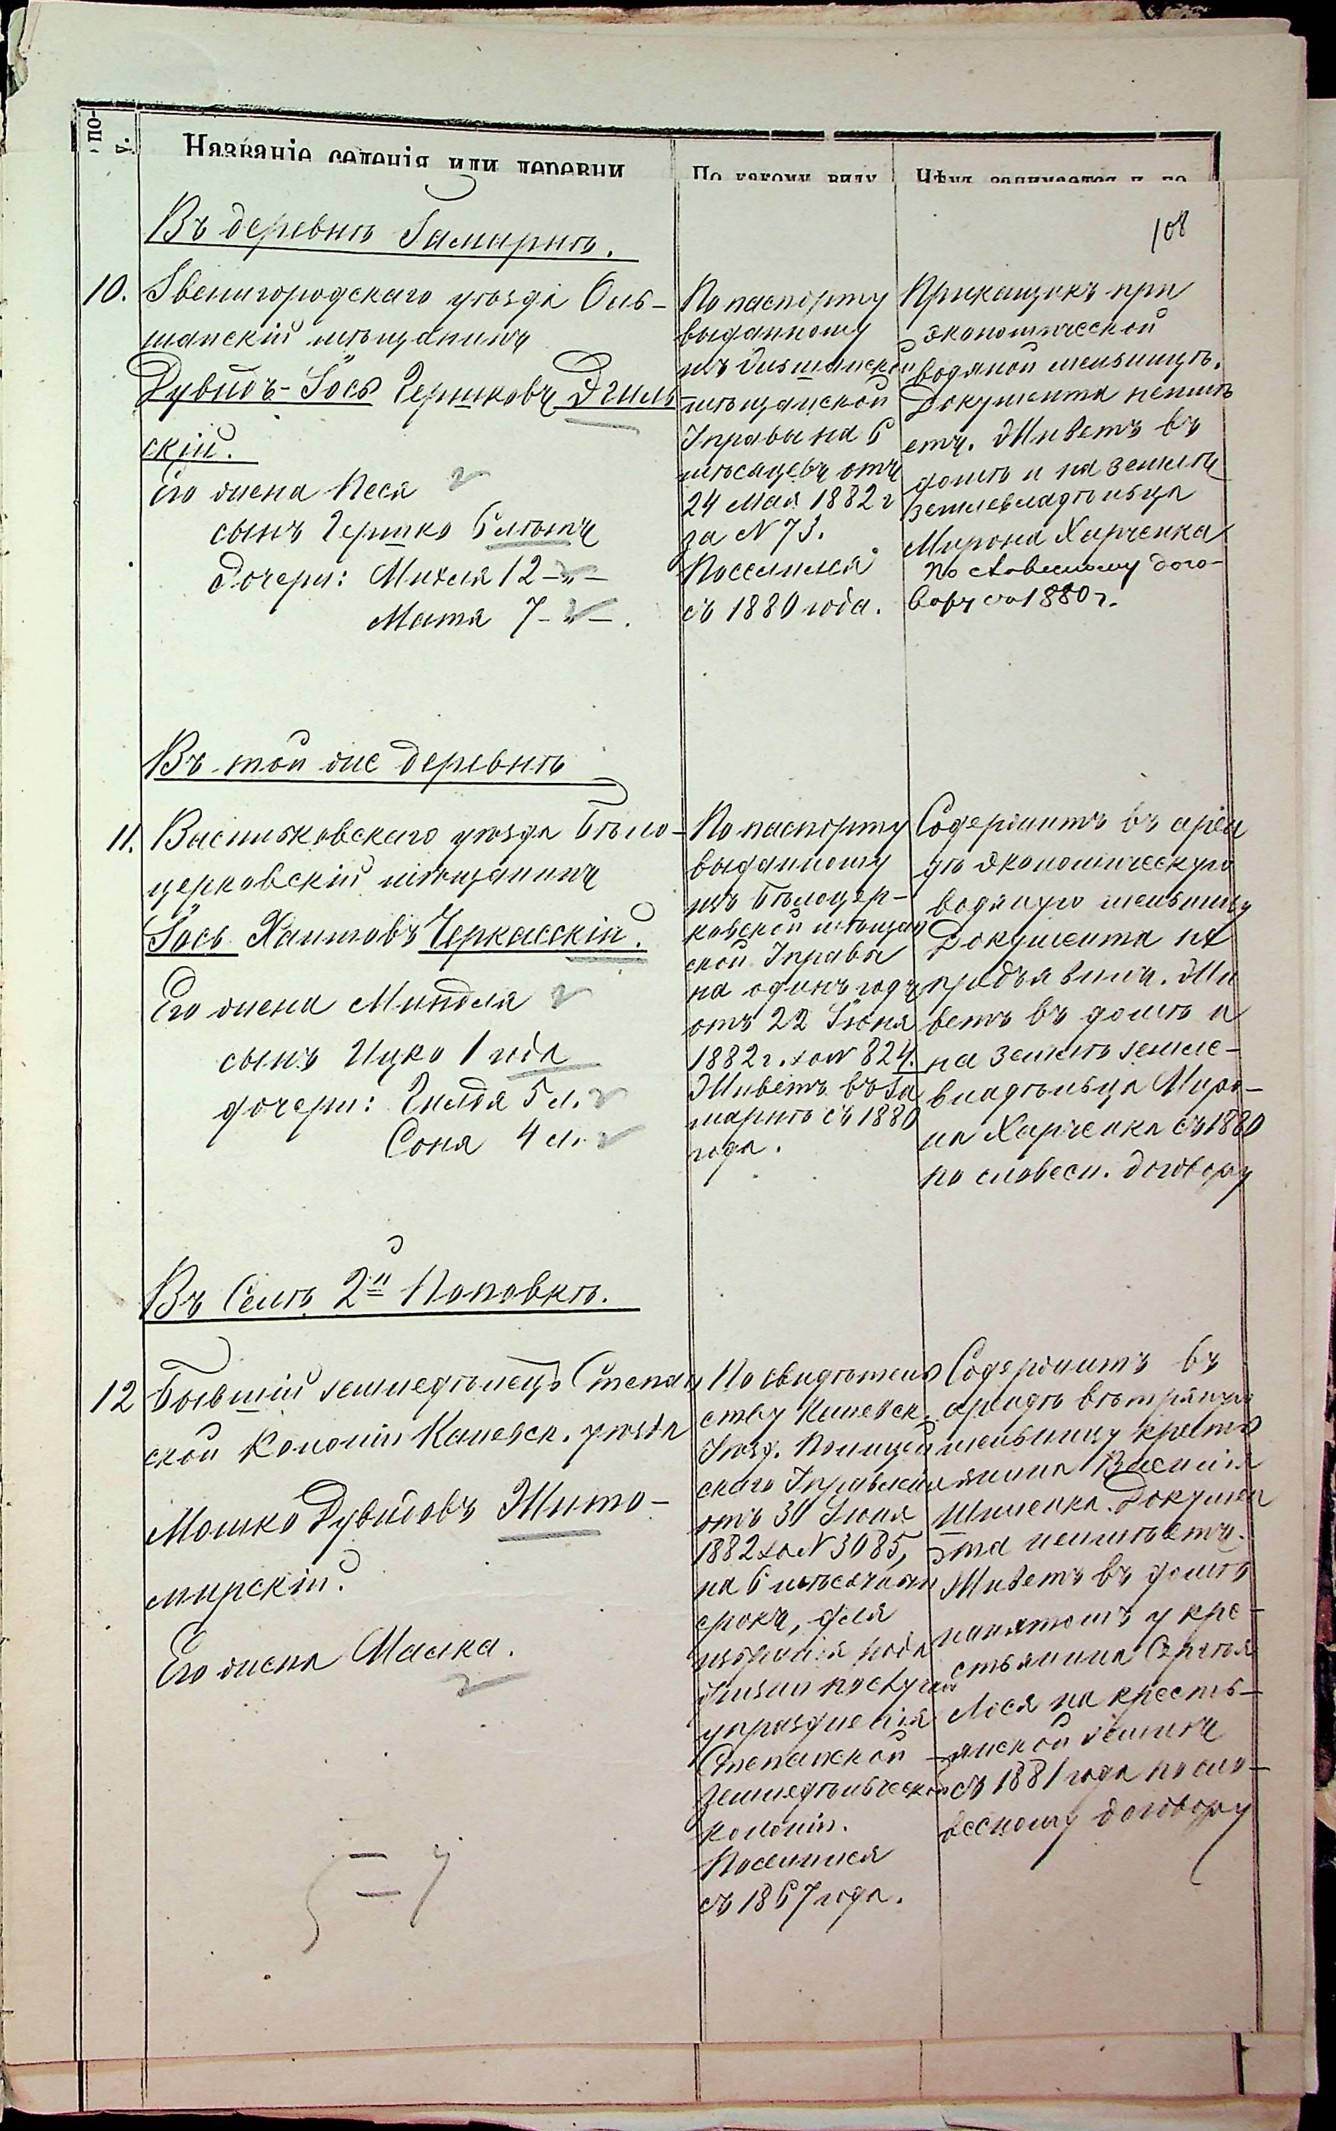 по-
у.
Названіе селенія или деревни
По какому виду
Чѣмъ занимается и по
108
Въ деревнѣ Гамарнѣ.
10.
Звенигородскаго уѣзда Оль-
шанскій мѣщанинъ
Дувидъ-Іось Гершковъ Дгиль
скій.
Его жена Песя
сынъ Гершко 6 лѣтъ
Дочери: Михля 12 -„-
Матя 7 -„-.
По паспорту
выданному
изъ Ольшанской
мѣщанской
Управы на 6
мѣсяцевъ отъ
24 Мая 1882 г
за N 73.
Поселился
съ 1880 года.
Прикащикъ при
экономической
водяной мельницѣ.
Документа неимѣ
етъ. Живетъ въ
домѣ и на землѣ
Землевладѣльца
Мирона Харченка
по словесному дого-
вору съ 1880 г.
Въ той же деревнѣ
11.
Васильковскаго уѣзда Бѣло-
церковскій мѣщанинъ
Іось Хаимовъ Черкасскій.
Его жена Миндля
сынъ Ицко 1 года
дочери: Гилда 5 л.
Соня 4 л.
По паспорту
выданному
изъ Бѣлоцер-
ковской мѣщан
ской Управы
на одинъ годъ
отъ 22 Іюня
1882 г. за N 824.
Живетъ въ Га
марнѣ съ 1880
года.
Содержитъ въ арен
дѣ экономическую
водяную мельницу
Документа не
предъявилъ. Жи
ветъ въ домѣ и
на землѣ земле-
владѣльца Миро-
на Харченка съ 1880
по словесн. договору
Въ Селѣ 2й Поповкѣ.
12
Бывшій земледѣлецъ Степан
ской Колоніи Каневск. уѣзда
Мошко Дувидовъ Жито-
мирскій.
Его жена Малка.
По свидѣтель
ству Каневск.
Уѣзд. Полицей
скаго Управленія
отъ 30 Іюня
1882 за N 3085,
на 6 мѣсячный
срокъ, для
избранія рода
жизни послучаю
упраздненія
Степанской
земледѣльческой
колоніи.
Поселился
съ 1867 года.
Содержитъ въ
арендѣ вѣтряную
мельницу кресть
янина Василія
Шиленка. Докумен
та неимѣетъ.
Живетъ въ домѣ
нанятомъ у кре-
стьянина Сергѣя
Лося на кресть-
янской землѣ
съ 1881 года по сло-
весному договору